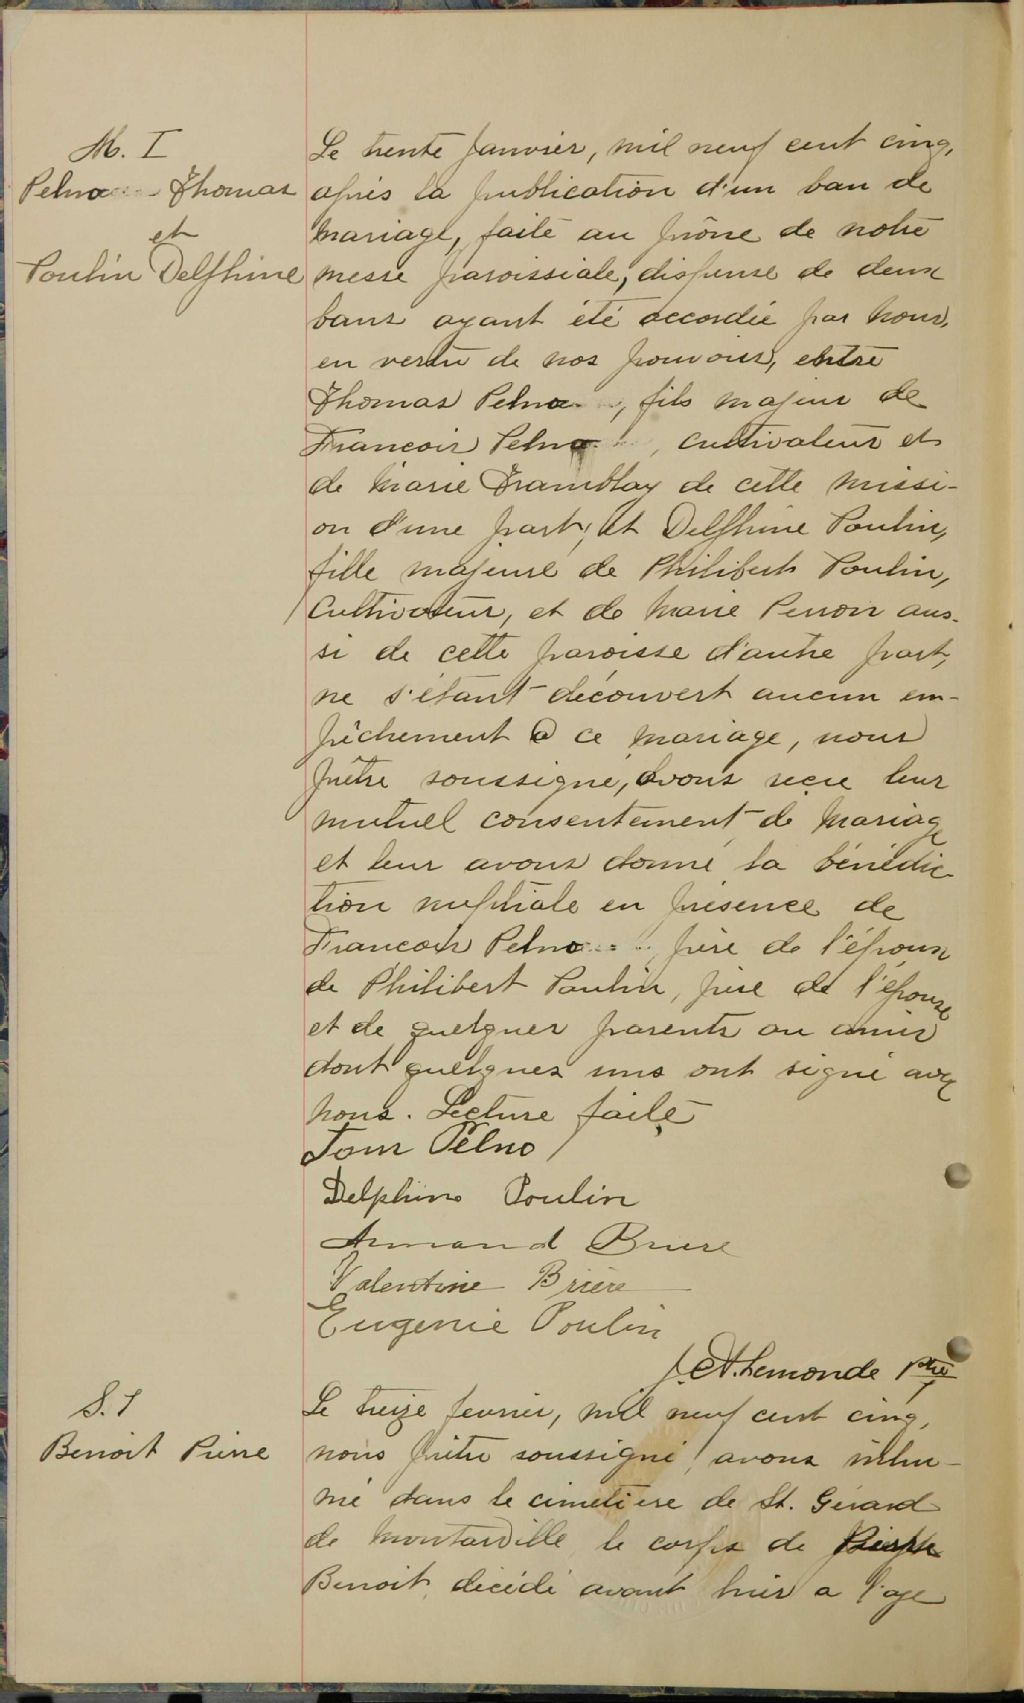 M. I
Pelno Thomas
et
Poulin Delphine
Le trente Janvier, mil neuf cent cinq,
après la publication d'un ban de
mariage, faite au prône de notre
messe paroissiale, dispense de deux
bans ayant été accordée par nous,
en vertu de nos pouvoirs, entre
Thomas Pelno, fils majeur de
Francois Pelno, cultivateur et
de Marie Tramblay de cette missi-
on d'une part; et Delphine Poulin,
fille majeure de Philibert Poulin,
Cultivateur, et de Marie Perron aus-
si de cette paroisse d'autre part,
ne s'étant découvert aucun em-
pêchement a ce mariage, nous
prêtre soussigné, avons reçu leur
mutuel consentement de mariage
et leur avons donné la bénédic-
tion nuptiale en présence de
Francois Pelno père de l'époux
de Philibert Poulin, père de l'épouse
et de quelques parents ou amis
dont quelques uns ont signé avec
nous. Lecture faite
Tom Pelno
Delphine Poulin
Armand Briere
Valentine Brière
Eugenie Poulin
J. A. Lemonde Ptre
S. 1
Benoit Pierre
Le treize fevrier, mil neuf cent cinq,
nous prêtre soussigné avons inhu-
mé dans le cimetière de St. Gérard
de Montarville le corps de
Benoit décédé avant hier a l'age